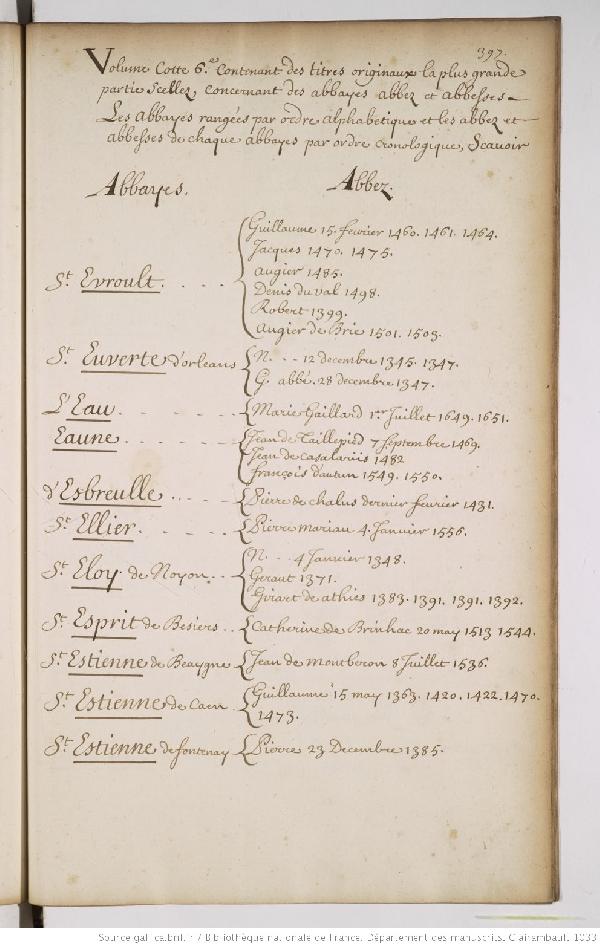 397.
Volume Cotte 6.e Contenant des titres originaux la plus grande
partie Scellez, concernant des abbayes abbez et abbesses
Les Abbayes rangées par ordre alphabetique et les abbez et
abbesses de chaque abbayes par ordre cronologique, Scavoir
Abbayes. Abbez.
Guillaume 15. fevrier 1460. 1461. 1464.
Jacques 1470. 1475.
augier 1485.
St Evroult. Denis du val 1498.
Robert 1399.
augier de Brie 1501. 1503.
St Euverte d'orleans N. 12 decembre 1345. 1347.
G. abbé 28 decembre 1347.
L'Eau. Marie Gaillard 1er Juillet 1649. 1651.
Eaune Jean de Taillepied 7 septembre 1469.
Jean de casalariis 1482
françois d'autun 1549. 1550.
d'Esbreulle Pierre de chalus dernier fevrier 1431.
St Ellier. Pierre Marian 4. Janvier 1556.
N. 4 Janvier 1348.
St Eloy. de Noyon Geraut 1371.
Girart de athies 1383. 1391. 1391. 1392.
St Esprit de Besiers Catherine de Brinhac 20 may 1513 1544.
St Estienne de Beaugne Jean de montberon 8 Juillet 1536.
St Estienne de Caen Guillaume 15 may 1363. 1420. 1422. 1470.
1473.
St Estienne de fontenay Pierre 23 Decembre 1385.
Source gallica.bnf.fr / Bibliothèque nationale de France. Département des manuscrits. Clairambault 1033